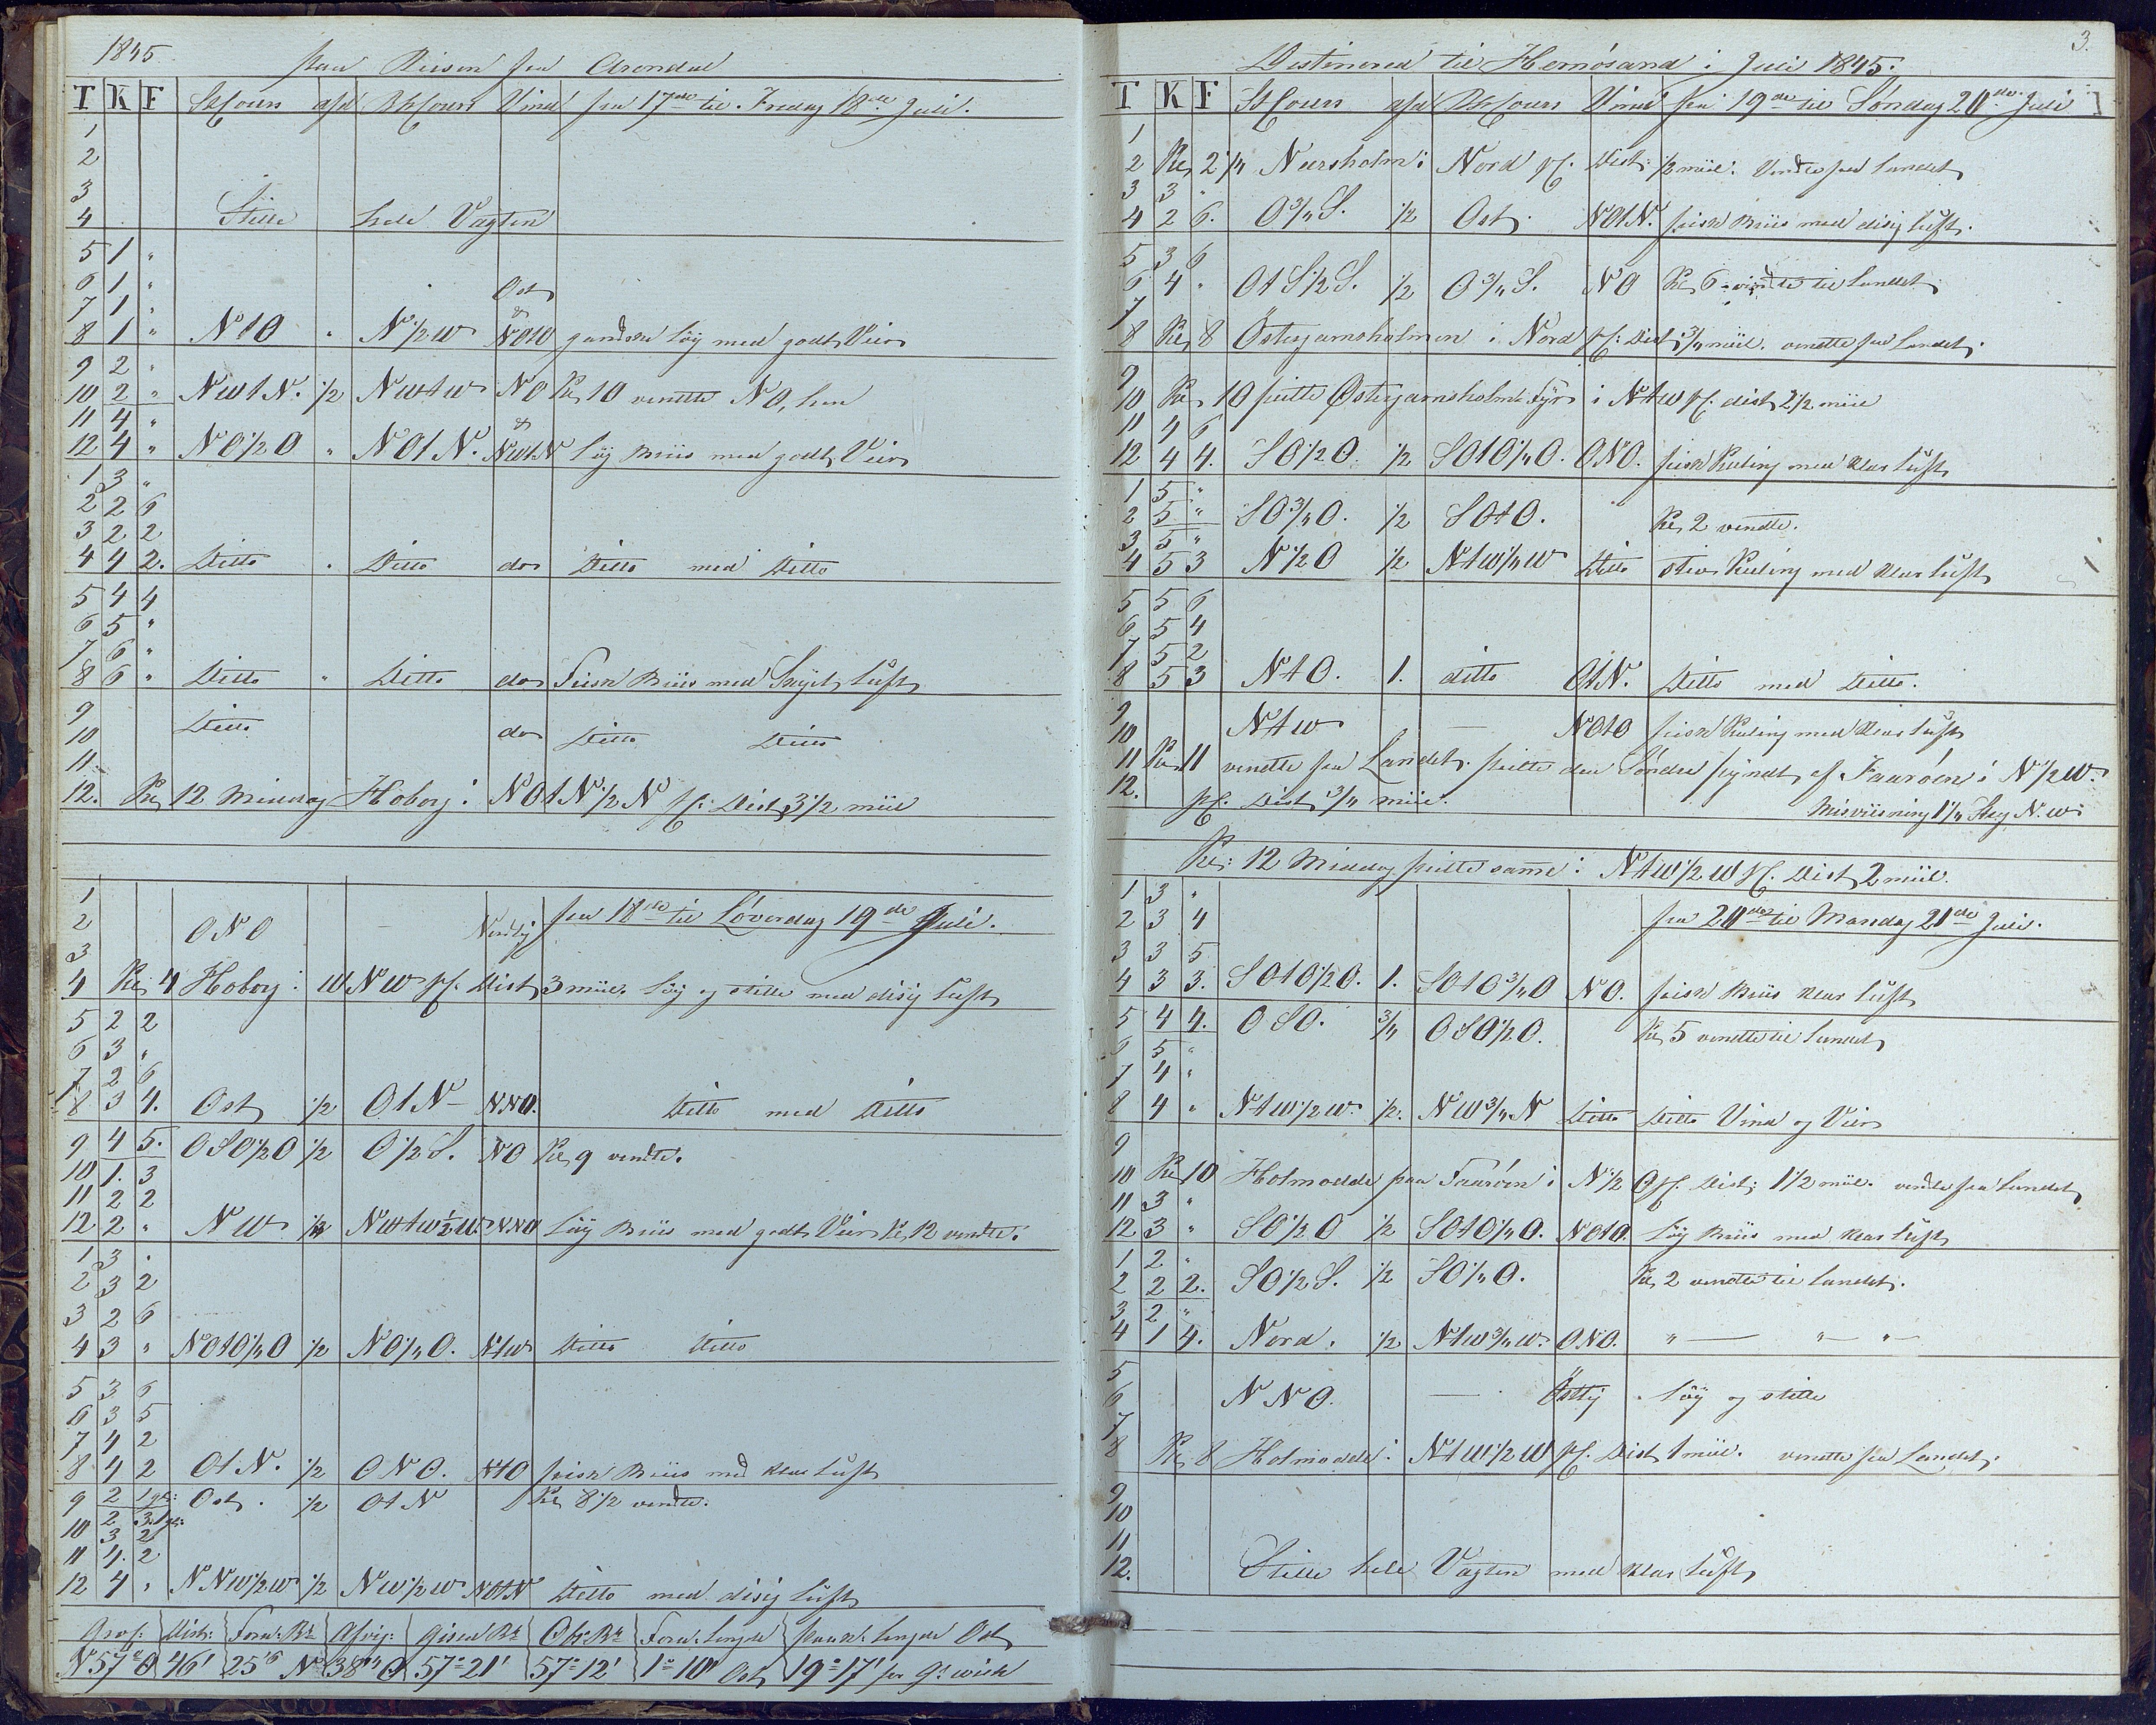 1845. paa Reisen fra Arendal
T K F St Cours afd Bh Cours Vind fra 17de til Fredag 18de Juli.
1
2
3
4 Stille hele Vagten
5 1 "
6 1 " Ost
7 1 " &
8 1 " NtO " N 1/2 W NOtO gandske Løy med godt Veir
9 2 "
10 2 " NWtN. 1/2 NWtW NO Kl 10 vendte NO, hen
11 4 " &
12 4 " NO 1/2 O " NOtN. NWtN Løy Briis med godt Veir
1 3 "
2 2 6
3 2 2
4 4 2. Ditto . Ditto do Ditto med Ditto
5 4 4
6 5 "
7 6 "
8 6 " Ditto " Ditto do Frisk Briis med Skyet Luft
9
10 Ditto do Ditto Ditto
11.
12. Kl 12 Middag Hoborg i NOtN 1/2 N pC: Dist 3 1/2 miil
1 fra 18de til Løverdag 19de Juli.
2 ONO — Nordlig
3
4 Kl 4 Hoborg i WNW pC. Dist 3 miil. Løy og stille med disig Luft
5 2 2
6 3 "
7 2 6
8 3 4. Ost 1/2 OtN — NNO. Ditto med Ditto
9 4 5. OSO 1/2 O 1/2 O 1/2 S. NO Kl 9 vendte.
10 1. 3
11 2 2
12 2 " NW 1/2 NWtW 1/2 W. NNO Løy Briis med godt Veir Kl 12 vendte.
1 3 "
2 3 2
3 2 6
4 3 " NOtO 1/4 O 1/2 NO 1/4 O. NtW Ditto Ditto
5 3 6
6 3 5
7 4 2
8 4 2 OtN. 1/2 ONO. NtO frisk Briis med klar Luft
9 2 1 gl: Ost. 1/2 OtN Kl 8 1/2 vendte.
2 3. 1 gl:
10 3 2
11 4. 2
12 4 " NNW 1/2 W 1/2 NW 1/2 W NOtN Ditto med disig Luft
Dist: Forn: Br Afvig: Gisen Br Obs: Br Forn: Lengde Paak: Lengde Ost
N 57° O 46' 25'6 N 38'4 O 57° 21' 57° 12' 1° 10' Ost 19° 17' fra Gr wich
3.
Destinered til Hernösand i Juli 1845.
T K F St Cours afd Bh Cours Vind fra 19de til Søndag 20de Juli
1
2 Kl 2 1/4 Nærsholm i Nord pC. Dist: 1/2 miil. Vendte fra Landet
3 3 "
4 2 6. O 3/4 S. 1/2 Ost. NOtN. frisk Briis med disig Luft.
5 3 6
6 4 " OtS 1/2 S. 1/2 O 3/4 S. NO Kl 6 vendte til Landet.
7
8 Kl 8 Östergarnsholmen i Nord pC: Dist 3/4 miil. vendte fra Landet.
9
10 Kl 10 peilte Östergarnsholms Fyr i NtW pC. dist 2 1/2 miil
11 4 6
12 4 4. SO 1/2 O. 1/2 SOtO 1/4 O. ONO. frisk Kuling med klar Luft
1 5 "
2 5 " SO 3/4 O. 1/2 SOtO. Kl 2 vendte.
3 5 "
4 5 3 N 1/2 O 1/2 NtW 1/4 W Ditto stiv Kuling med klar Luft
5 5 6
6 5 4
7 5 2
8 5 3 NtO. 1. ditto OtN. Ditto med Ditto.
9
10 NtW — NOtO frisk Kuling med klar Luft
11 Kl 11 vendte fra Landet. peilte den Søndre pyndt af Faaröen i N 1/2 W.
12. pC. Dist: 3/4 miil. Misviisning 1 1/4 Streg N.W.
Kl: 12 Middag peilte samme i NtW 1/2 W pC. Dist 2 miil.
1 3 "
2 3 4 fra 20de til Mandag 21de Juli.
3 3 5
4 3 3. SOtO 1/2 O. 1. SOtO 3/4 O NO. frisk Briis klar Luft
5 4 4. OSO. 3/4 OSO 1/2 O. Kl 5 vendte til Landet
6 5 "
7 4 "
8 4 " NtW 1/2 W. 1/2. NW 3/4 N Ditto Ditto Vind og Veir
9
10 Kl 10 Holmodde paa Faaröen i N 1/2 O pC. Dist: 1 1/2 miil. vendte fra Landet
11 3 "
12 3 " SO 1/2 O 1/2 SOtO 1/4 O. NOtO. Løy Briis med klar Luft
1 2 "
2 2 2. SO 1/2 S. 1/2 SO 1/4 O. Kl 2 vendte til Landet.
3 2 "
4 1 4. Nord. 1/2 NtW 3/4 W. ONO. " — " — " —
5
6 NNO. — Østlig Løy og stille
7
8 Kl 8 Holmodde i NtW 1/2 W pC. Dist 1 miil. vendte fra Landet.
9
10
11
12. Stille hele Vagten med klar Luft